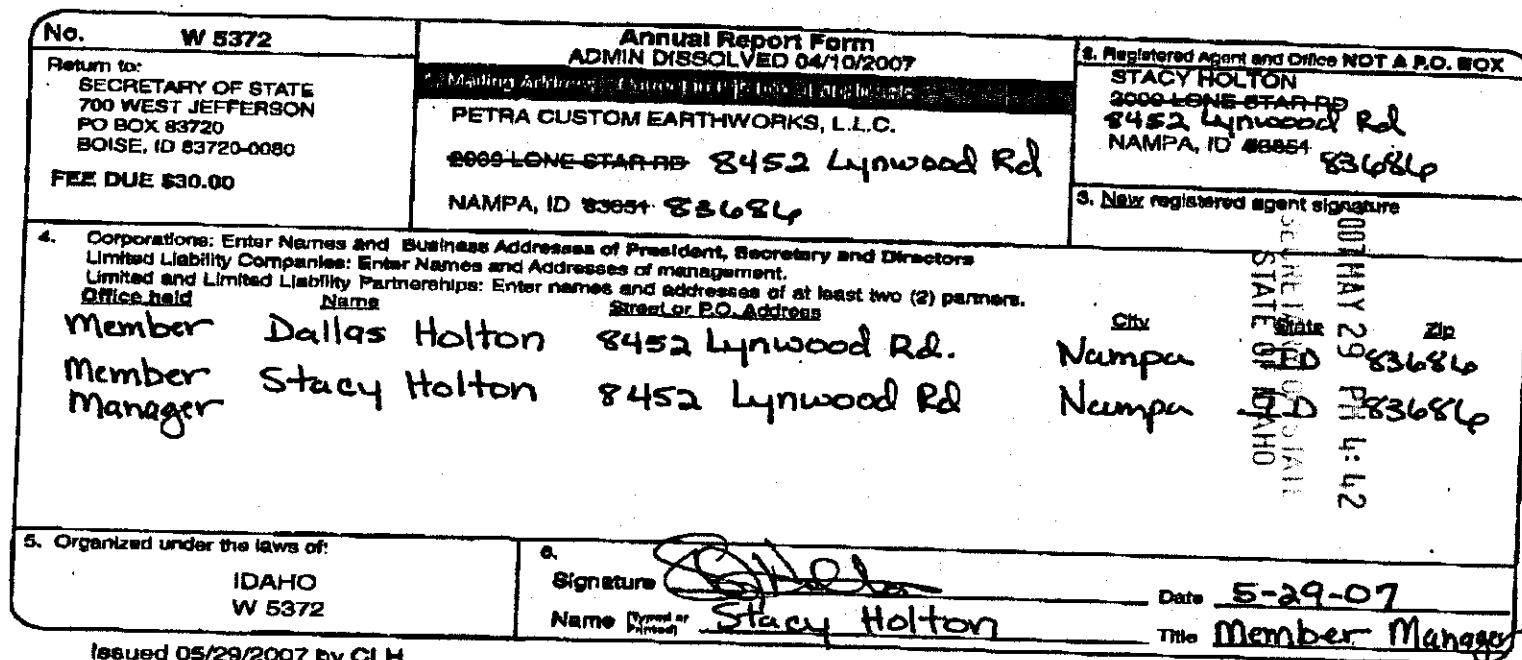 No. W 5372
Return to:
SECRETARY OF STATE
700 WEST JEFFERSON
PO BOX 83720
BOISE, ID 83720-0080
FEE DUE $30.00
Annual Report Form
ADMIN DISSOLVED 04/10/2007
1. Mailing Address
PETRA CUSTOM EARTHWORKS, L.L.C.
2009 LONE STAR RD 8452 Lynwood Rd
NAMPA, ID 83651 83686
2. Registered Agent and Office NOT A P.O. BOX
STACY HOLTON
2009 LONE STAR RD
8452 Lynwood Rd
NAMPA, ID 83651 83686
3. New registered agent signature
4. Corporations: Enter Names and Business Addresses of President, Secretary and Directors
Limited Liability Companies: Enter Names and Addresses of management.
Limited and Limited Liability Partnerships: Enter names and addresses of at least two (2) partners.
Office held Name Street or P.O. Address City State Zip
Member Dallas Holton 8452 Lynwood Rd. Nampa ID 83686
Member Manager Stacy Holton 8452 Lynwood Rd Nampa ID 83686
2007 MAY 29 PM 4:42
SECRETARY OF STATE
STATE OF IDAHO
5. Organized under the laws of:
IDAHO
W 5372
6.
Signature
Date 5-29-07
Name (Typed or Printed) Stacy Holton
Title Member Manager
Issued 05/29/2007 by CLH